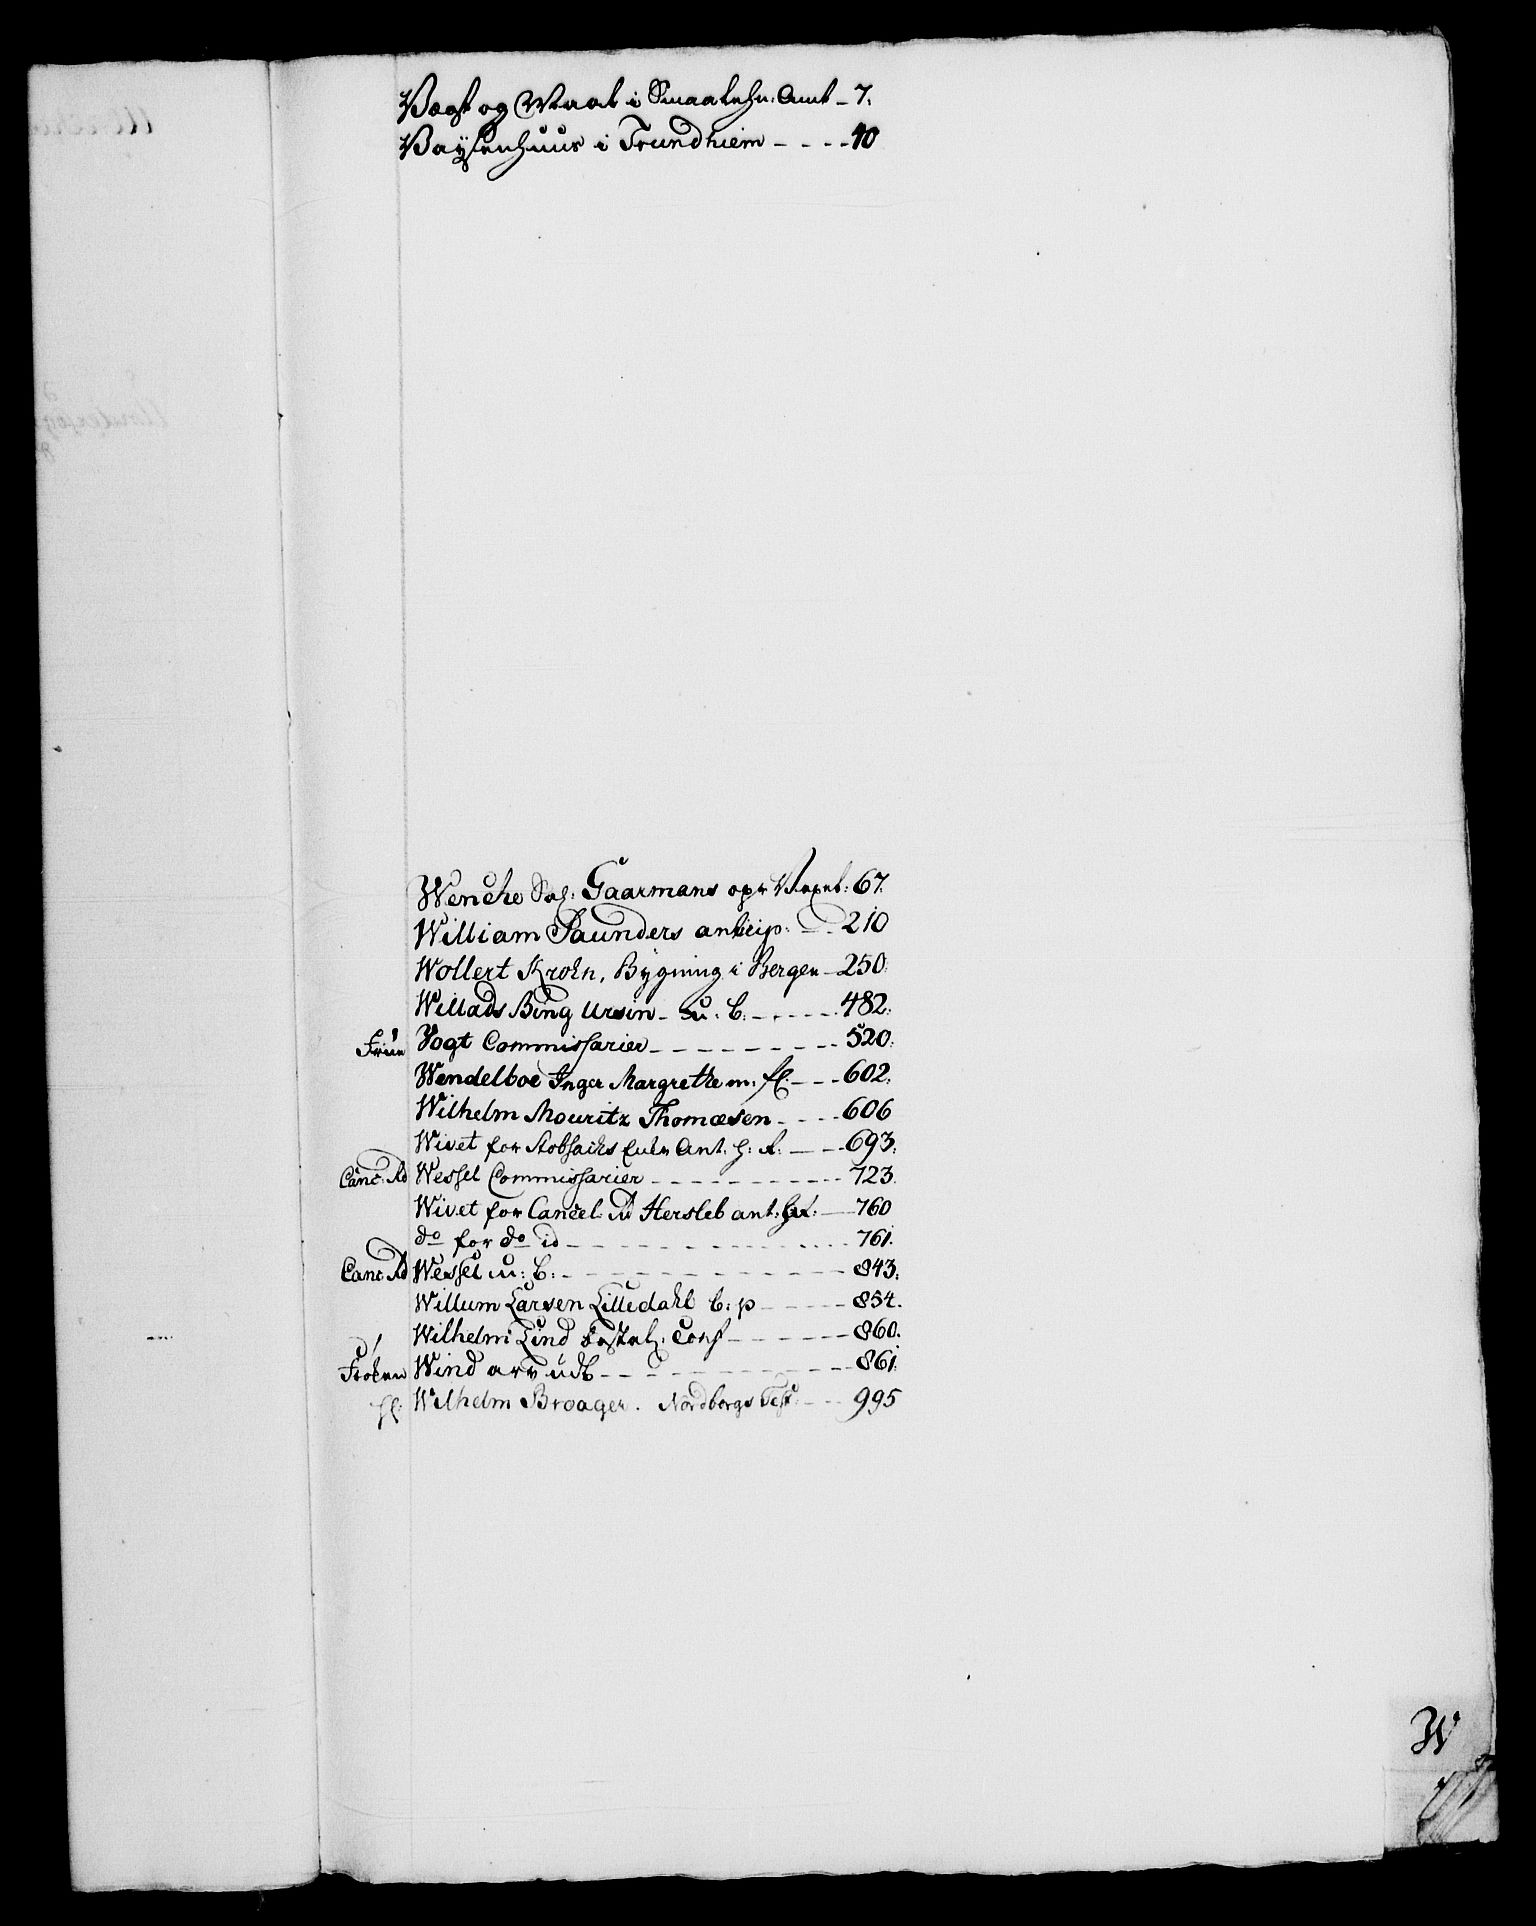 Vægt og Maal i Smaalehn: Amt – 7.
Vaÿsenhuus i Trundhiem – – – – 40
Wenche Sal: Gaarmans opr: 67.
William Saunders anticip: – – 210
Wollert Krohn, Bÿgning i Bergen – 250.
Willads Bing Ursin – u: b: – – – – 482.
Frue Vogt Commissarier – – – – – – 520.
Wendelboe Inger Margrethe m: fl: – – – 602.
Wilhelm Mouritz Thomæsen – – – – 606
Wivet for Ant: h: R: – – – 693.
Canc: Rd Wessel Commissarier – – – – – – – 723.
Wivet for Cancel: Rd Hersleb ant: – 760
do for do id – – – – – – – – 761.
Canc Rd Wessel u: b: – – – – – – – – – 843.
Willum Larsen Lilledahl b: p – – – – 854.
Wilhelm Lind Conf – – – – – 860.
Frøken Wind arv udb – – – – – – – – 861.
Wilhelm Broager. Nordborgs Test – – – 995
W